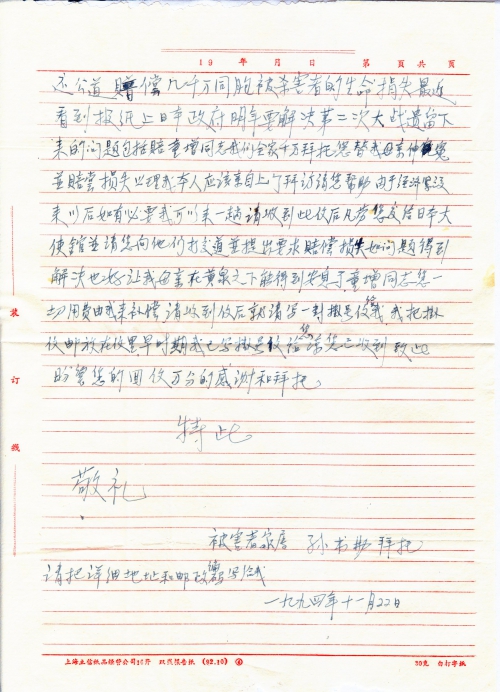 19 年 月 日 第 页共 页
还公道赔偿几千万同胞被杀害者的生命损失最近
看到报纸上日本政府明年要解决第二次大战遗留下
来的问题包括赔童增同志我们全家千万拜托您替我母亲伸冤
並赔偿损失以理我本人应该亲自上门拜访请您帮助由于经济
来以后如有必要我可以来一趟请收到此信后凡寄您交给日本大
使馆並请您向他们打交道並提出要求赔偿损失如问题得到
解决也好让我母亲在黄泉之下能得到安息了童增同志您一
切用费由我来补偿请收到信后就请写一封挂号信给我我把
信邮放在信里早时期我已写挂号信给您您已收到致此
盼望您的回信万分的感谢和拜托
特此
敬礼
被害者家居 孙书 拜托
请把详细地址和邮政编写给我
一九九四年十一月22日
装
订
线
上海立信纸品经营公司16开 双线报告纸 (92.10) ④ 30克 白打字纸